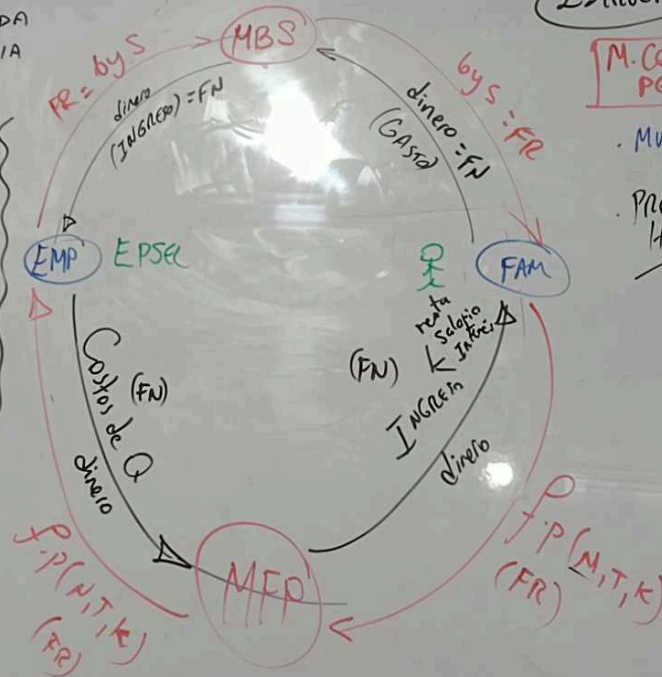 DA
IA
MBS
FR = bys
dinero
(INGRESO) = FN
bys = FR
dinero = FN
(GASTO)
M. CO
PE
. MU
. PR
EMP
EPSEL
FAM
renta
Salario
Interés
K
(FN)
INGRESO
dinero
Costos de Q
(FN)
dinero
MFP
f.p(N,T,K)
(FR)
f.p(N,T,K)
(FR)